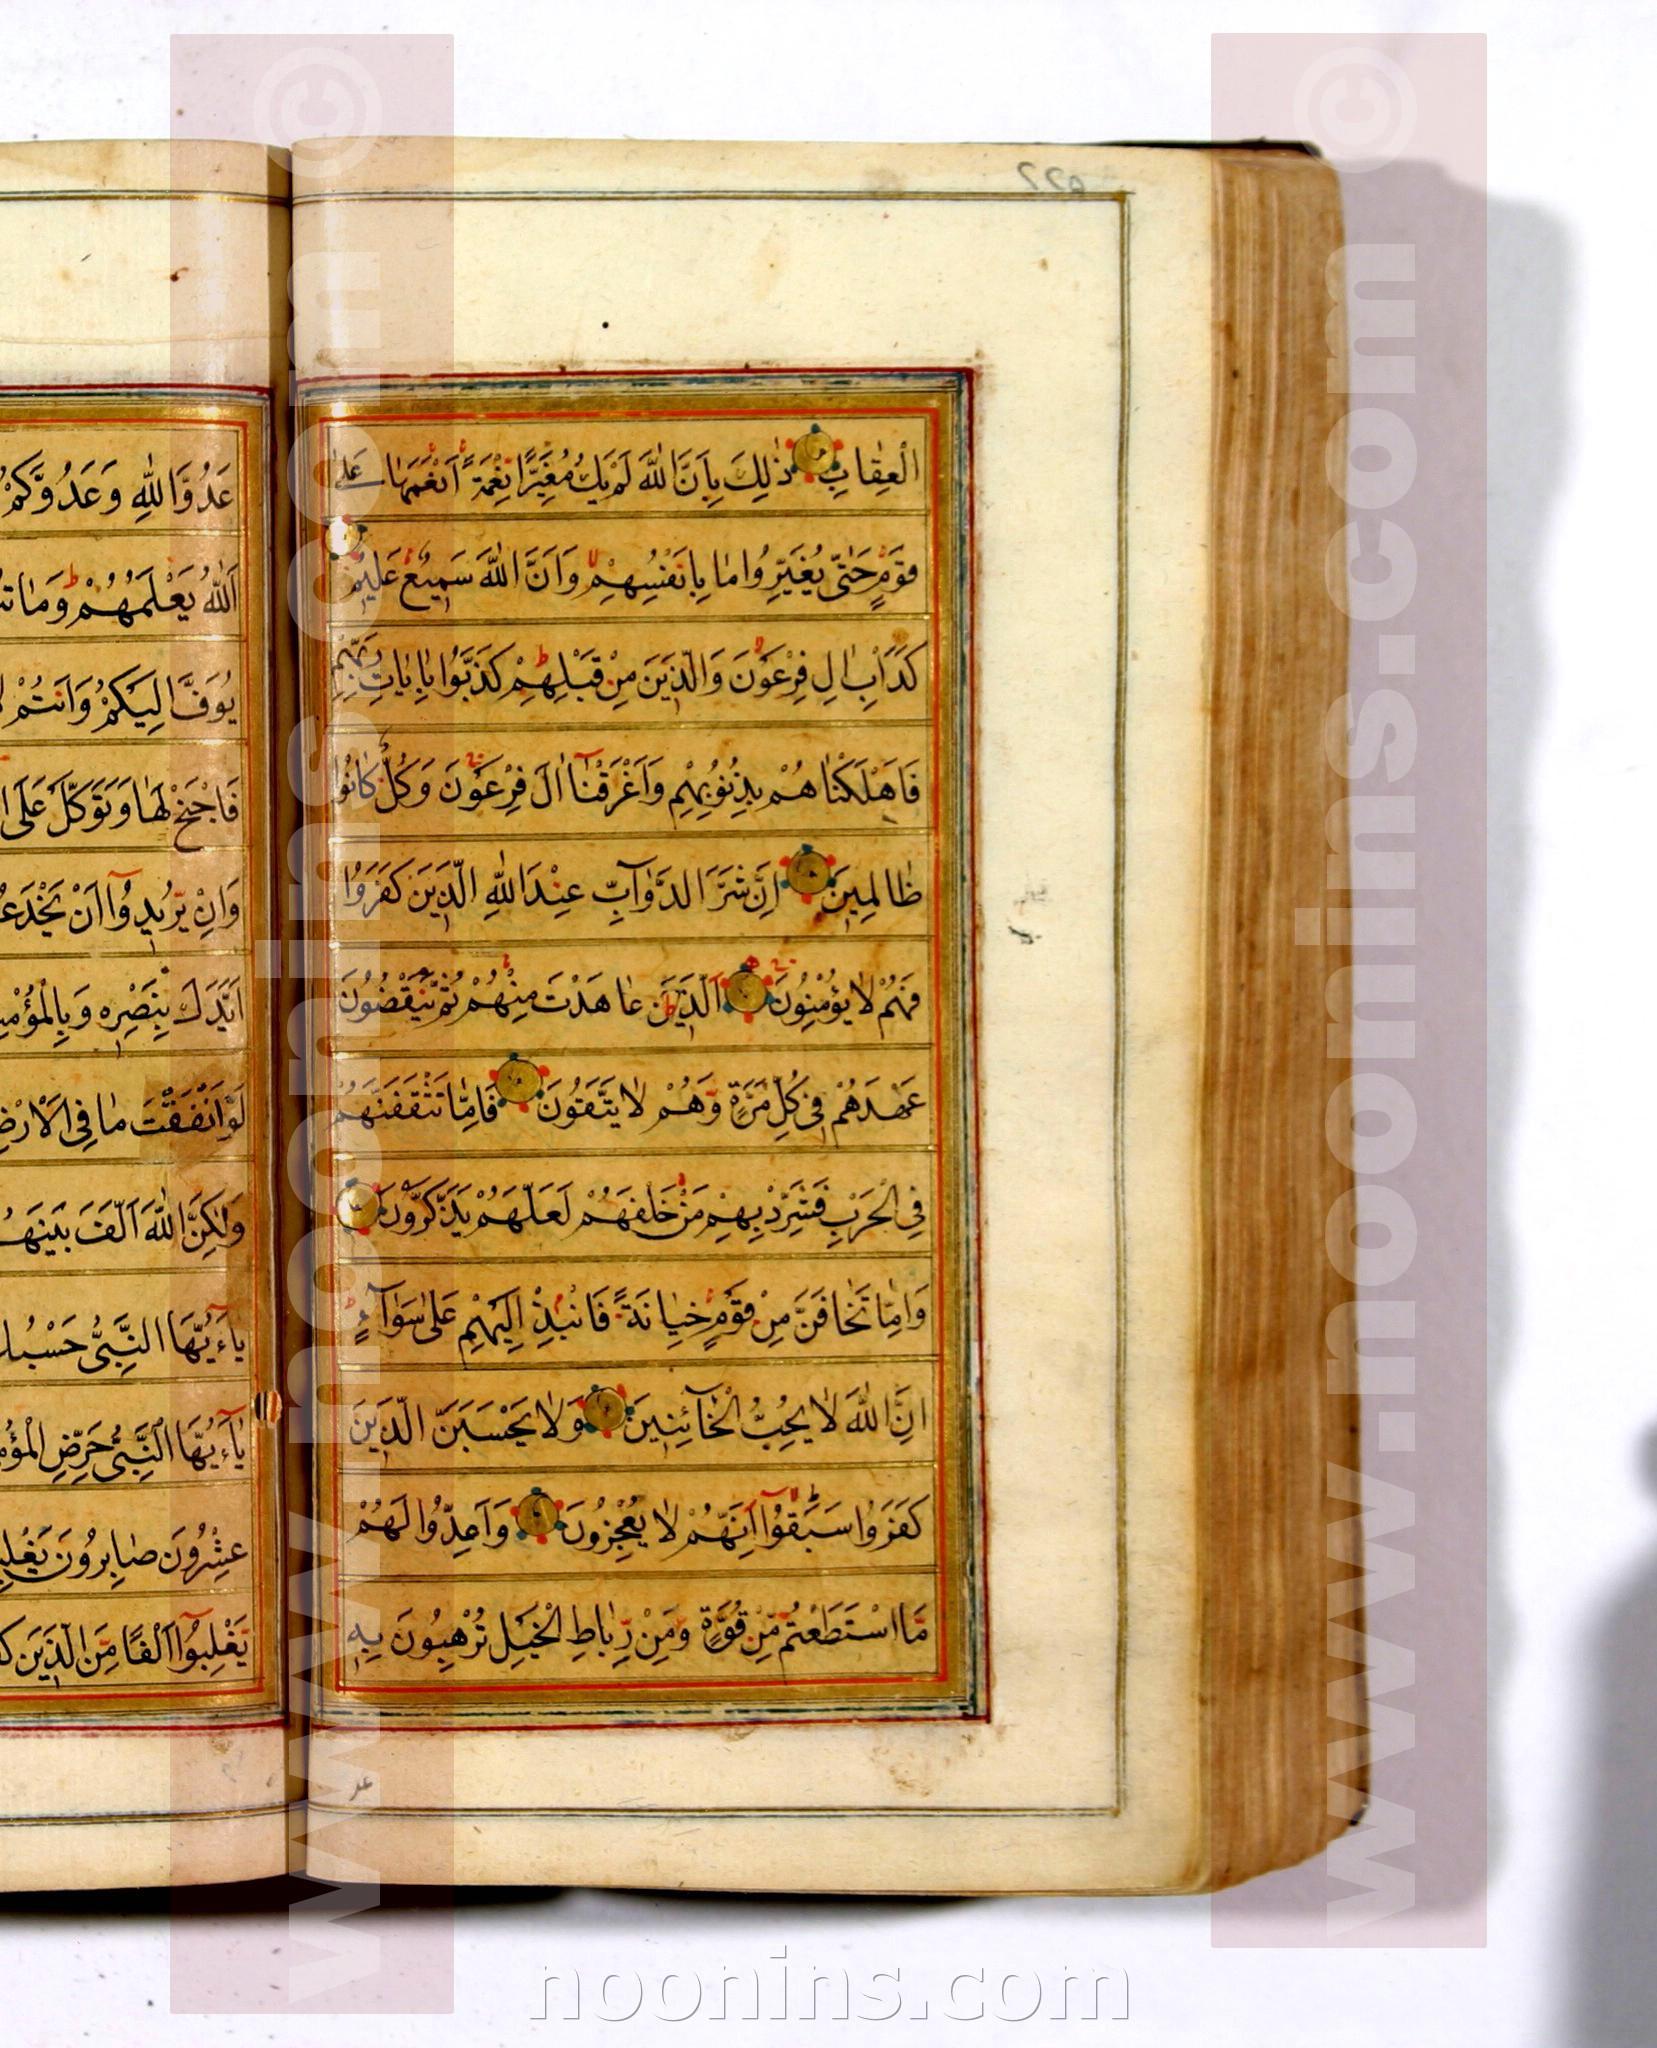 ٥٢٢
الْعِقٰابِ ذٰلِكَ بِاَنَّ اللّٰهَ لَمْ يَكُ مُغَيِّرًا نِعْمَةً اَنْعَمَهٰا عَلىٰ
قَوْمٍ حَتّٰى يُغَيِّرُوا مٰا بِاَنْفُسِهِمْ وَاَنَّ اللّٰهَ سَمِيعٌ عَلِيمٌ
كَدَاْبِ اٰلِ فِرْعَوْنَ وَالَّذِينَ مِنْ قَبْلِهِمْ كَذَّبُوا بِاٰيٰاتِ رَبِّهِمْ
فَاَهْلَكْنٰاهُمْ بِذُنُوبِهِمْ وَاَغْرَقْنٰا اٰلَ فِرْعَوْنَ وَكُلٌّ كٰانُوا
ظٰالِمِينَ اِنَّ شَرَّ الدَّوٰآبِّ عِنْدَ اللّٰهِ الَّذِينَ كَفَرُوا
فَهُمْ لٰا يُؤْمِنُونَ اَلَّذِينَ عٰاهَدْتَ مِنْهُمْ ثُمَّ يَنْقُضُونَ
عَهْدَهُمْ فِي كُلِّ مَرَّةٍ وَهُمْ لٰا يَتَّقُونَ فَاِمّٰا تَثْقَفَنَّهُمْ
فِي الْحَرْبِ فَشَرِّدْ بِهِمْ مَنْ خَلْفَهُمْ لَعَلَّهُمْ يَذَّكَّرُونَ
وَاِمّٰا تَخٰافَنَّ مِنْ قَوْمٍ خِيٰانَةً فَانْبِذْ اِلَيْهِمْ عَلىٰ سَوٰآءٍ
اِنَّ اللّٰهَ لٰا يُحِبُّ الْخٰآئِنِينَ وَلٰا يَحْسَبَنَّ الَّذِينَ
كَفَرُوا سَبَقُوآ اِنَّهُمْ لٰا يُعْجِزُونَ وَاَعِدُّوا لَهُمْ
مَا اسْتَطَعْتُمْ مِنْ قُوَّةٍ وَمِنْ رِبٰاطِ الْخَيْلِ تُرْهِبُونَ بِهِ
عد
عَدُوَّ اللّٰهِ وَعَدُوَّكُمْ
اَللّٰهُ يَعْلَمُهُمْ وَمٰا
يُوَفَّ اِلَيْكُمْ وَاَنْتُمْ
فَاجْنَحْ لَهٰا وَتَوَكَّلْ عَلَى
وَاِنْ يُرِيدُوآ اَنْ يَخْدَعُ
اَيَّدَكَ بِنَصْرِهِ وَبِالْمُؤْمِ
لَوْ اَنْفَقْتَ مٰا فِي الْاَرْضِ
وَلٰكِنَّ اللّٰهَ اَلَّفَ بَيْنَهُ
يٰآءَيُّهَا النَّبِيُّ حَسْبُكَ
يٰآءَيُّهَا النَّبِيُّ حَرِّضِ الْمُؤْمِ
عِشْرُونَ صٰابِرُونَ يَغْلِبُ
يَغْلِبُوآ اَلْفًا مِنَ الَّذِينَ
www.noonins.com ©
www.noonins.com ©
noonins.com